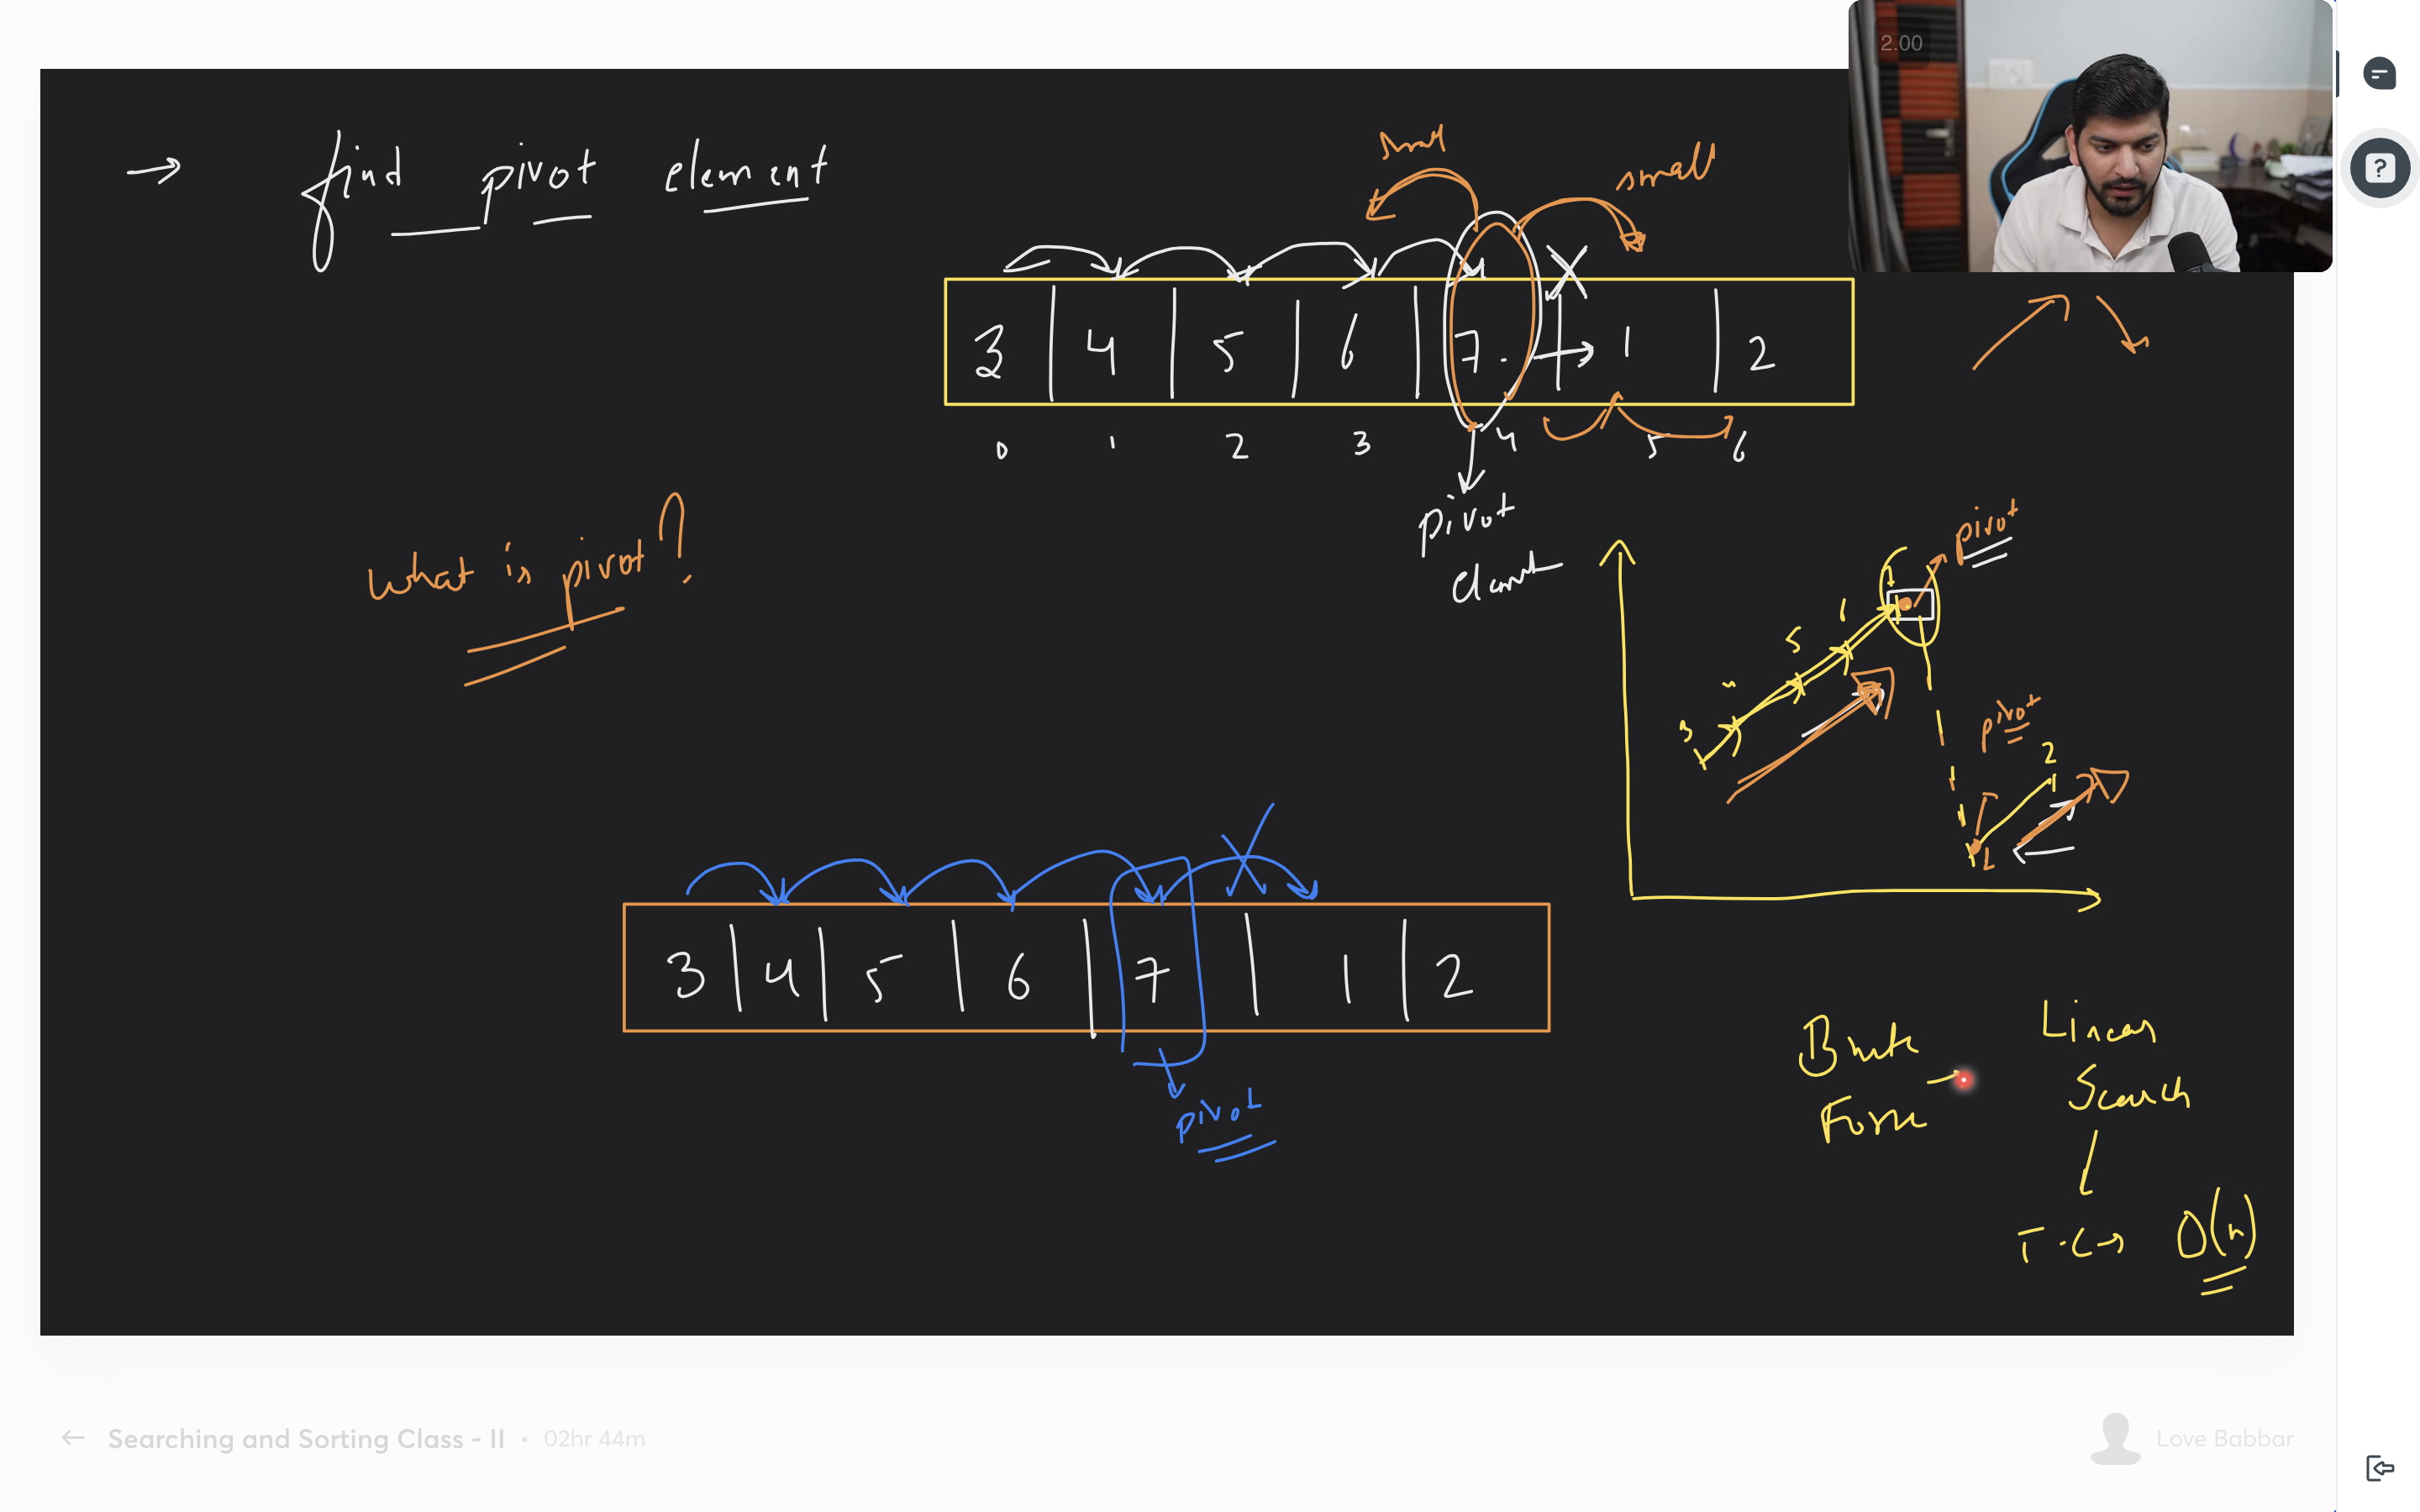 2.00
→ find pivot element
small
small
3 | 4 | 5 | 6 | 7 | → 1 | 2
0 1 2 3 4 5 6
pivot
element
what is pivot?
pivot
5
3
pivot
2
3 | 4 | 5 | 6 | 7 | 1 | 2
pivot
Brute
Force
→ Linear
Search
T.C → O(n)
← Searching and Sorting Class - II • 02hr 44m
Love Babbar